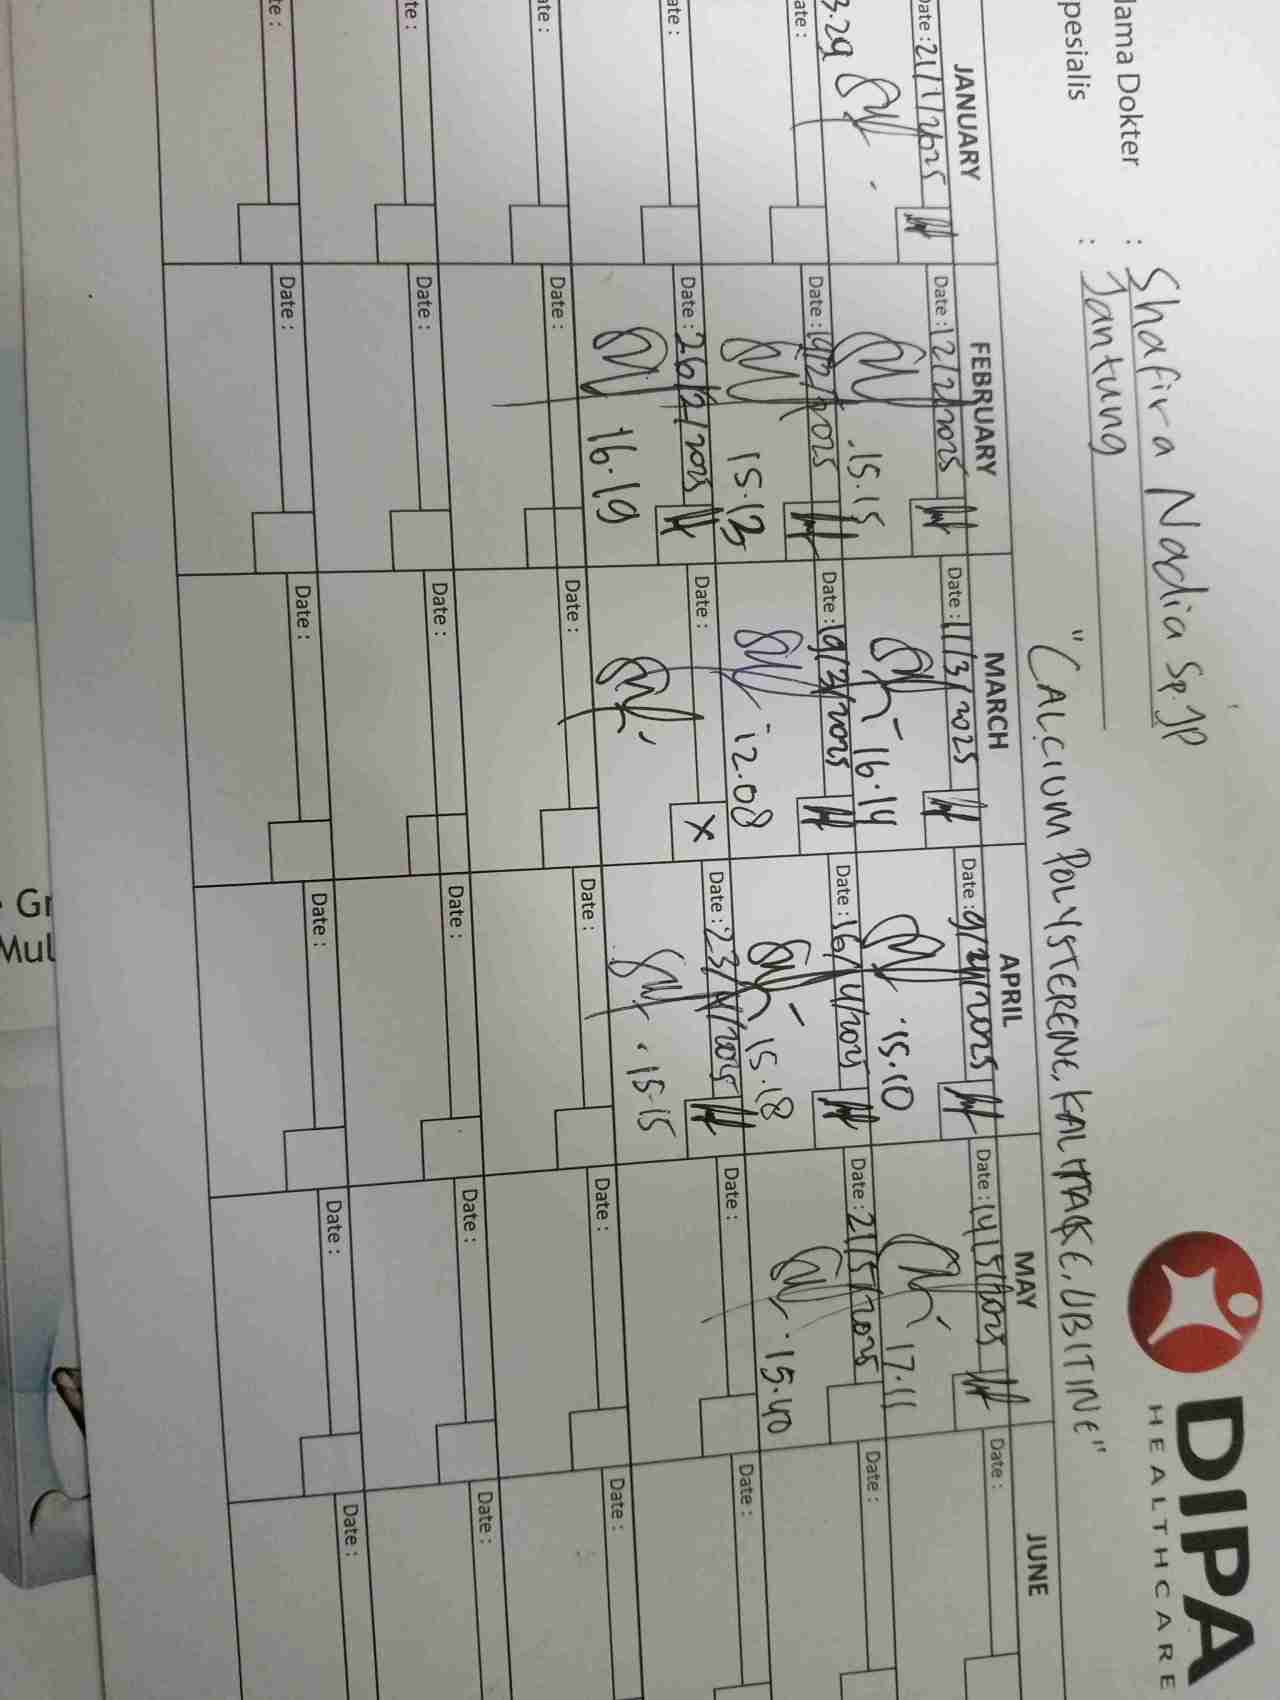 DIPA
HEALTHCARE
ama Dokter : Shafira Nadia Sp.JP
pesialis : Jantung
"CALCIUM POLYSTEREINE, KALITAKE, UBITINE"
JANUARY FEBRUARY MARCH APRIL MAY JUNE
Date : 21/1/2025 Date : 12/2/2025 Date : 11/3/2025 Date : 9/4/2025 Date : 14/5/2025 Date :
3.29 15.15 16.14 15.10 17.11
ate : Date : 19/2/2025 Date : 19/3/2025 Date : 16/4/2025 Date : 21/5/2025 Date :
15.13 12.08 15.18 15.40
ate : Date : 26/2/2025 Date : X Date : 23/4/2025 Date : Date :
16.19 15.15
ate : Date : Date : Date : Date : Date :
te : Date : Date : Date : Date : Date :
te : Date : Date : Date : Date : Date :
Gr
Mul